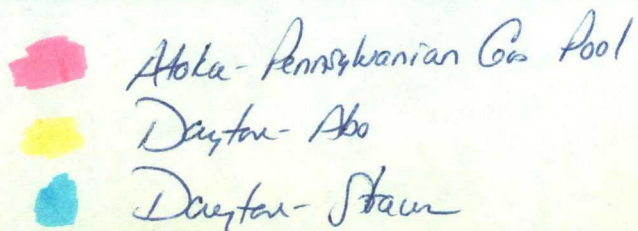 Atoka-Pennsylvanian Gas Pool
Dayton-Abo
Dayton-